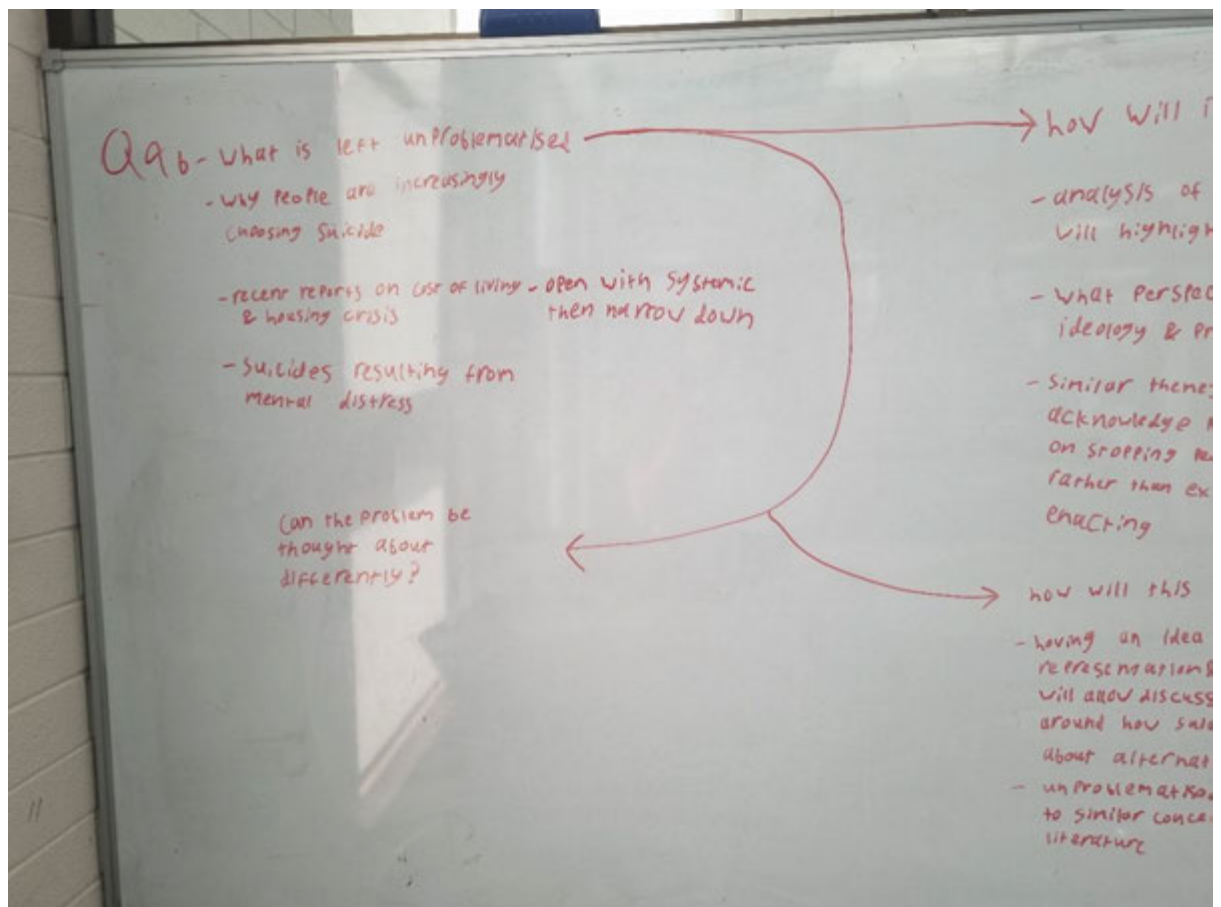 Q4b - What is left unproblematised
- why people are increasingly
choosing suicide
- recent reports on cost of living - open with systemic
& housing crisis then narrow down
- suicides resulting from
mental distress
Can the problem be
thought about
differently?
how will i
- analysis of
will highligh
- what perspec
ideology & pr
- similar theme
acknowledge
on stopping
rather than ex
enacting
how will this
- having an idea
representations
will allow discuss
around how
about alternat
- unproblematised
to similar conce
literature